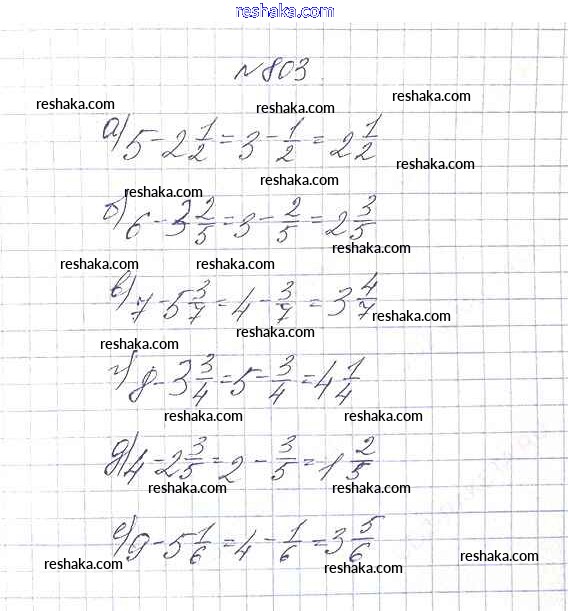 reshaka.com
№803
reshaka.com reshaka.com reshaka.com
а) 5 - 2 1/2 = 3 - 1/2 = 2 1/2
reshaka.com
reshaka.com reshaka.com
б) 6 - 3 2/5 = 3 - 2/5 = 2 3/5
reshaka.com
reshaka.com reshaka.com
в) 7 - 5 3/7 = 4 - 3/7 = 3 4/7
reshaka.com reshaka.com
г) 8 - 3 3/4 = 5 - 3/4 = 4 1/4
reshaka.com reshaka.com
д) 4 - 2 3/5 = 2 - 3/5 = 1 2/5
reshaka.com reshaka.com
е) 9 - 5 1/6 = 4 - 1/6 = 3 5/6
reshaka.com reshaka.com reshaka.com